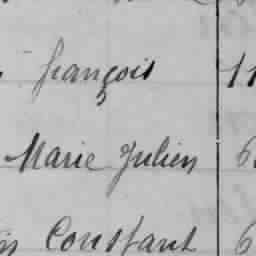 françois 11
Marie Julien 6
Constant 6